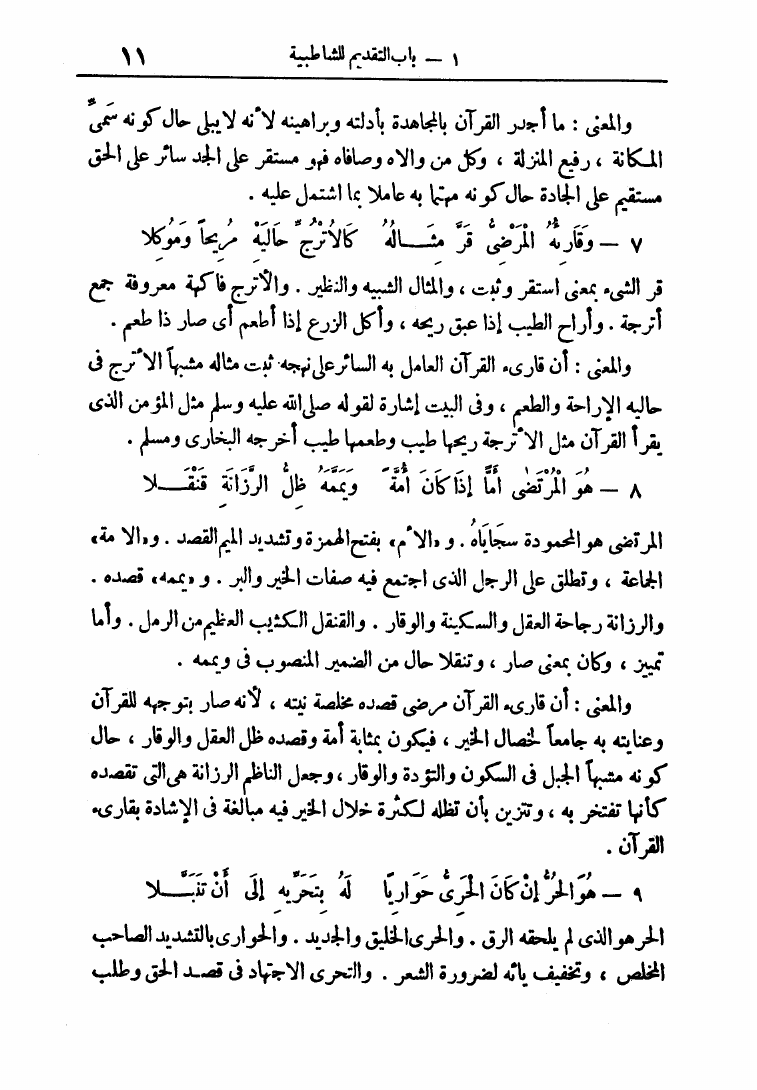 ١ – باب التقديم للشاطبية ١١
والمعنى : ما أجدر القرآن بالمجاهدة بأدلته وبراهينه لأنه لا يبلى حال كونه سَمىَّ
المكانة ، رفيع المنزلة ، وكل من والاه وصافاه فهو مستقر على الجد سائر على الحق
مستقيم على الجادة حال كونه مهتما به عاملا بما اشتمل عليه .
٧ – وَقَارِئُهُ المَرْضِىُّ قَرَّ مِثَــالُهُ كَالاُتْرُجِّ حَالَيْهِ مُرِيحاً وَمُوكِلا
قر الشىء بمعنى استقر وثبت ، والمثال الشبيه والنظير . والأترج فاكهة معروفة جمع
أترجة . وأراح الطيب إذا عبق ريحه ، وأكل الزرع إذا أطعم أى صار ذا طعم .
والمعنى : أن قارىء القرآن العامل به السائر على نهجه ثبت مثاله مشبهاً الأترج فى
حاليه الإراحة والطعم ، وفى البيت إشارة لقوله صلى الله عليه وسلم مثل المؤمن الذى
يقرأ القرآن مثل الأترجة ريحها طيب وطعمها طيب أخرجه البخارى ومسلم .
٨ – هُوَ الْمُرْتَضَى أَمًّا إِذَا كَانَ أُمَّةً وَيَمَّمَهُ ظِلُّ الرَّزَانَةِ قَنْقَــلا
المرتضى هو المحمودة سجَايَاهُ . و «الأم» بفتح الهمزة وتشديد الميم القصد . و«الامة»
الجماعة ، وتطلق على الرجل الذى اجتمع فيه صفات الخير والبر . و «يممه» قصده .
والرزانة رجاحة العقل والسكينة والوقار . والقنقل الكثيب العظيم من الرمل . وأما
تمييز ، وكان بمعنى صار ، وتنقلا حال من الضمير المنصوب فى ويممه .
والمعنى : أن قارىء القرآن مرضى قصده مخلصة نيته ، لأنه صار بتوجهه للقرآن
وعنايته به جامعاً لخصال الخير ، فيكون بمثابة أمة وقصده ظل العقل والوقار ، حال
كونه مشبهاً الجبل فى السكون والتؤدة والوقار ، وجعل الناظم الرزانة هى التى تقصده
كأنها تفتخر به ، وتتزين بأن تظله لكثرة خلال الخير فيه مبالغة فى الإشادة بقارىء
القرآن .
٩ – هُوَ الحُرُّ إِنْ كَانَ الحَرِىُّ حَوَارِيًا لَهُ بِتَحَرِّيهِ إِلَى أَنْ تَنَبَّــلا
الحر هو الذى لم يلحقه الرق . والحرى الخليق والجدير . والحوارى بالتشديد الصاحب
المخلص ، وتخفيف يائه لضرورة الشعر . والتحرى الاجتهاد فى قصـد الحق وطلب